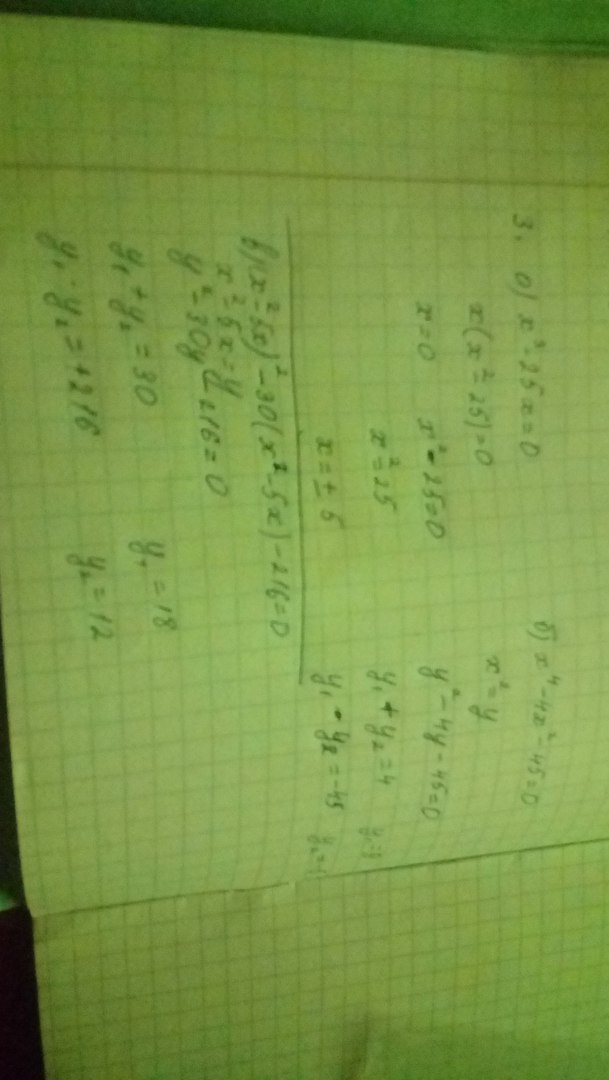 3. а) x³-25x=0
x(x²-25)=0
x=0 x²-25=0
x²=25
x=±5
б) x⁴-4x²-45=0
x²=y
y²-4y-45=0
y₁+y₂=4
y₁·y₂=-45
в) (x²-5x)²-30(x²-5x)-216=0
x²-5x=y
y²-30y-216=0
y₁+y₂=30 y₁=18
y₁·y₂=+216 y₂=12